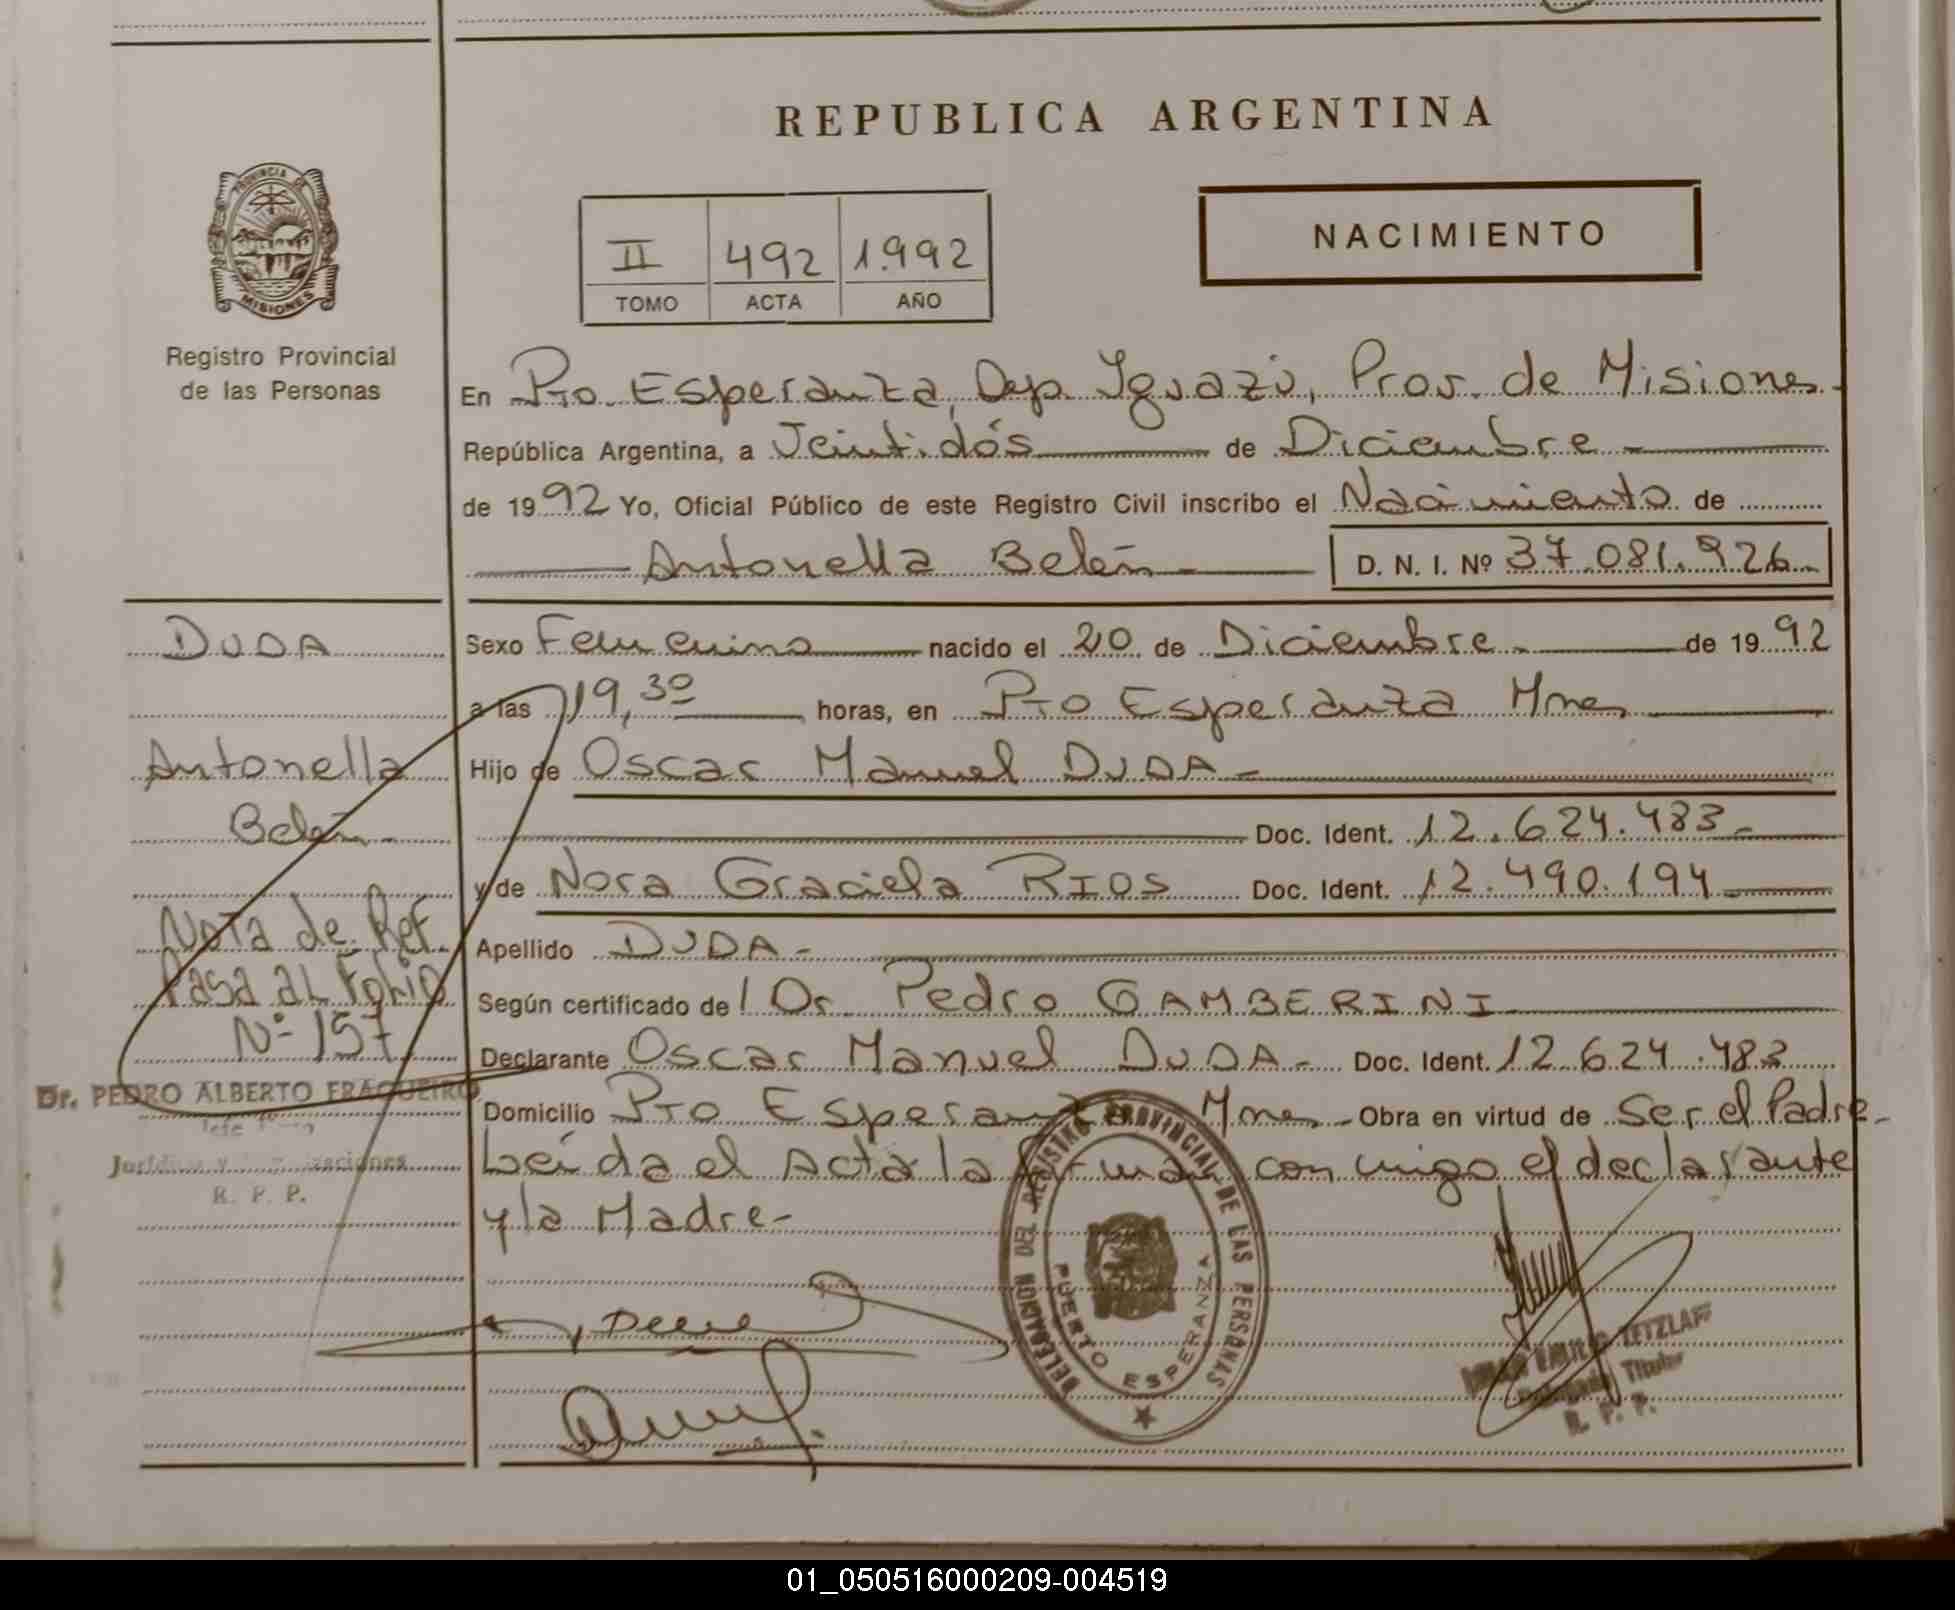 REPUBLICA ARGENTINA
PROVINCIA DE
MISIONES
Registro Provincial
de las Personas
II 492 1.992
TOMO ACTA AÑO
NACIMIENTO
En Pto Esperanza, Dep. Iguazú, Prov. de Misiones.
República Argentina, a Veintidós de Diciembre
de 1992 Yo, Oficial Público de este Registro Civil inscribo el Nacimiento de
Antonella Belén D. N. I. Nº 37.081.926
DUDA
Antonella
Belén
Nota de Ref.
Pasa al Folio
Nº 157
Dr. PEDRO ALBERTO FRAGUEIRO
R. P. P.
Sexo Femenino nacido el 20 de Diciembre de 1992
a las 19,30 horas, en Pto Esperanza Mnes
Hijo de Oscar Manuel DUDA
Doc. Ident. 12.624.483
y de Nora Graciela RIOS Doc. Ident. 12.490.194
Apellido DUDA
Según certificado del Dr. Pedro GAMBERINI
Declarante Oscar Manuel DUDA Doc. Ident. 12.624.483
Domicilio Pto Esperanza Mnes Obra en virtud de Ser el Padre
Leída el Acta la firman conmigo el declarante
y la Madre
DELEGACION DEL REGISTRO PROVINCIAL DE LAS PERSONAS
PUERTO ESPERANZA
TETZLAFF
Titular
R. P. P.
01_050516000209-004519